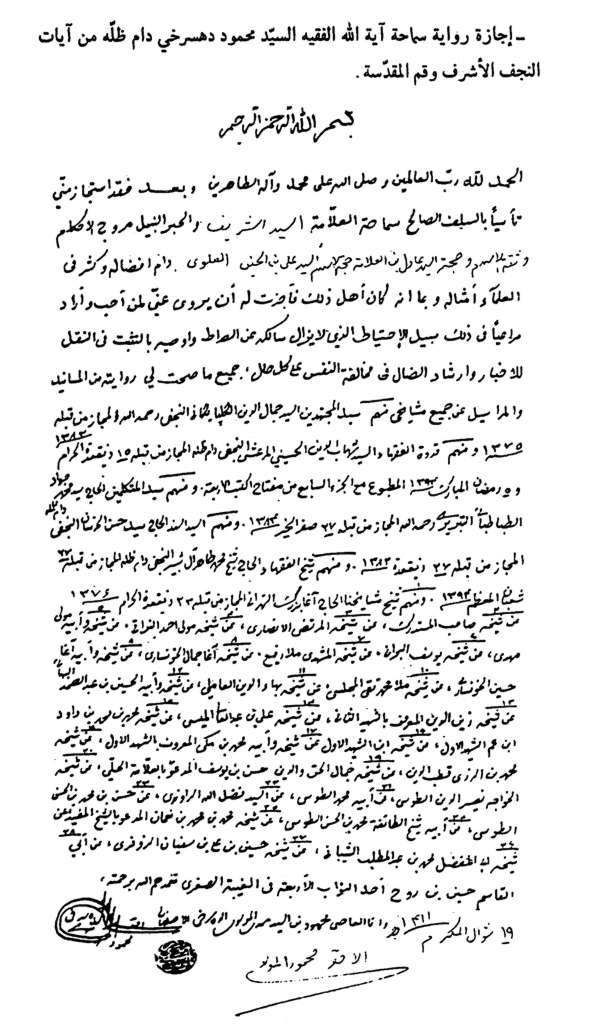 ـ إجازة رواية سماحة آية الله الفقيه السيّد محمود دهسرخي دام ظلّه من آيات
النجف الأشرف وقم المقدّسة .
بسم الله الرحمن الرحيم
الحمد لله ربّ العالمين وصلى الله على محمد وآله الطاهرين وبعد فقد استجازمنّي
تأسيأ بالسلف الصالح سماحة العلّامة السيد الشريف والحبر النبيل مروج الاحكام
السيد عادل بن العلامة السيد علي بن الحسين العلوي دام افضاله وكثر في
العلماء أمثاله وبما انه كان أهل ذلك فأجزت له أن يروى عنّي لمن أحب وأراد
مراعياً في ذلك سبيل الإحتياط الذي لايزال سالكه عن الصراط واوصيه بالتثبت في النقل
للاخبار وارشاد الضال في مخالفة النفس على كل حال، جميع ما صحت لي روايته من المسانيد
والمراسيل عن جميع مشايخي منهم سيد المجتهدين السيد جمال الدين الگلپايگاني النجفي رحمه الله المجاز من قبله
١٣٧٥ ومنهم قدوة الفقهاء السيد شهاب الدين الحسيني المرعشي النجفي دام ظله المجاز من قبله ١٥ ذيقعدة الحرام ١٣٨٣
و رمضان المبارك ١٣٩٣ المطبوع مع الجزء السابع من مفتاح الكتب الاربعة، ومنهم سيد المتكلمين الحاج سيد محمد جواد
الطباطبائي التبريزي رحمه الله المجاز من قبله ٢٧ صفر الخير ١٣٨٤. ومنهم السيد السند الحاج سيد حسن الخرسان النجفي
المجاز من قبله ٢٧ ذيقعدة ١٣٨٣. ومنهم شيخ الفقهاء الحاج شيخ محمد طاهر آل شبير النجفي دام ظله المجاز من قبله ٢٧
المعظم ١٣٩٣. ومنهم شيخ مشايخنا الحاج آغا بزرك الطهراني المجاز من قبله ٢٣ ذيقعدة الحرام ١٣٧٦
عن شيخه صاحب المستدرك، عن شيخه المرتضى الانصاري، عن شيخه مولى احمد النراقي، عن شيخه وأبيه مولى
مهدي، عن شيخه يوسف البحراني، عن شيخه المشهدي ملا رفيع، عن شيخه آغا جمال الخونساري، عن شيخه وأبيه آغا
حسين الخونساري، عن شيخه ملا محمد تقي المجلسي، عن شيخه بهاء الدين العاملي، عن شيخه وأبيه الحسين بن عبد الصمد
عن شيخه زين الدين المعروف بالشهيد الثاني، عن شيخه علي بن عبد العالي الميسي، عن شيخه محمد بن محمد بن داود
ابن عم الشهيد الاول، عن شيخه ابن الشهيد الاول، عن شيخه وأبيه محمد بن مكي المعروف بالشهيد الاول، عن شيخه
محمد بن الرازي قطب الدين، عن شيخه جمال الحق والدين حسن بن يوسف المدعو بالعلامة الحلي، عن شيخه
الخواجه نصير الدين الطوسي، عن أبيه محمد الطوسي، عن السيد فضل الله الراوندي، عن
الطوسي، عن أبيه شيخ الطائفة محمد بن الحسن الطوسي، عن شيخه محمد بن محمد بن نعمان المدعو بالشيخ المفيد، عن
شيخه ابي المفضل محمد بن عبد المطلب الشيباني، عن شيخه حسين بن علي بن سفيان البزوفري، عن أبي
القاسم حسين بن روح أحد النواب الأربعة في الغيبة الصغرى تغمدهم الله برحمته،
١٩ شوال المكرم ١٤١١ وانا العاصي محمود بن السيد
محمود
الاحقر محمود